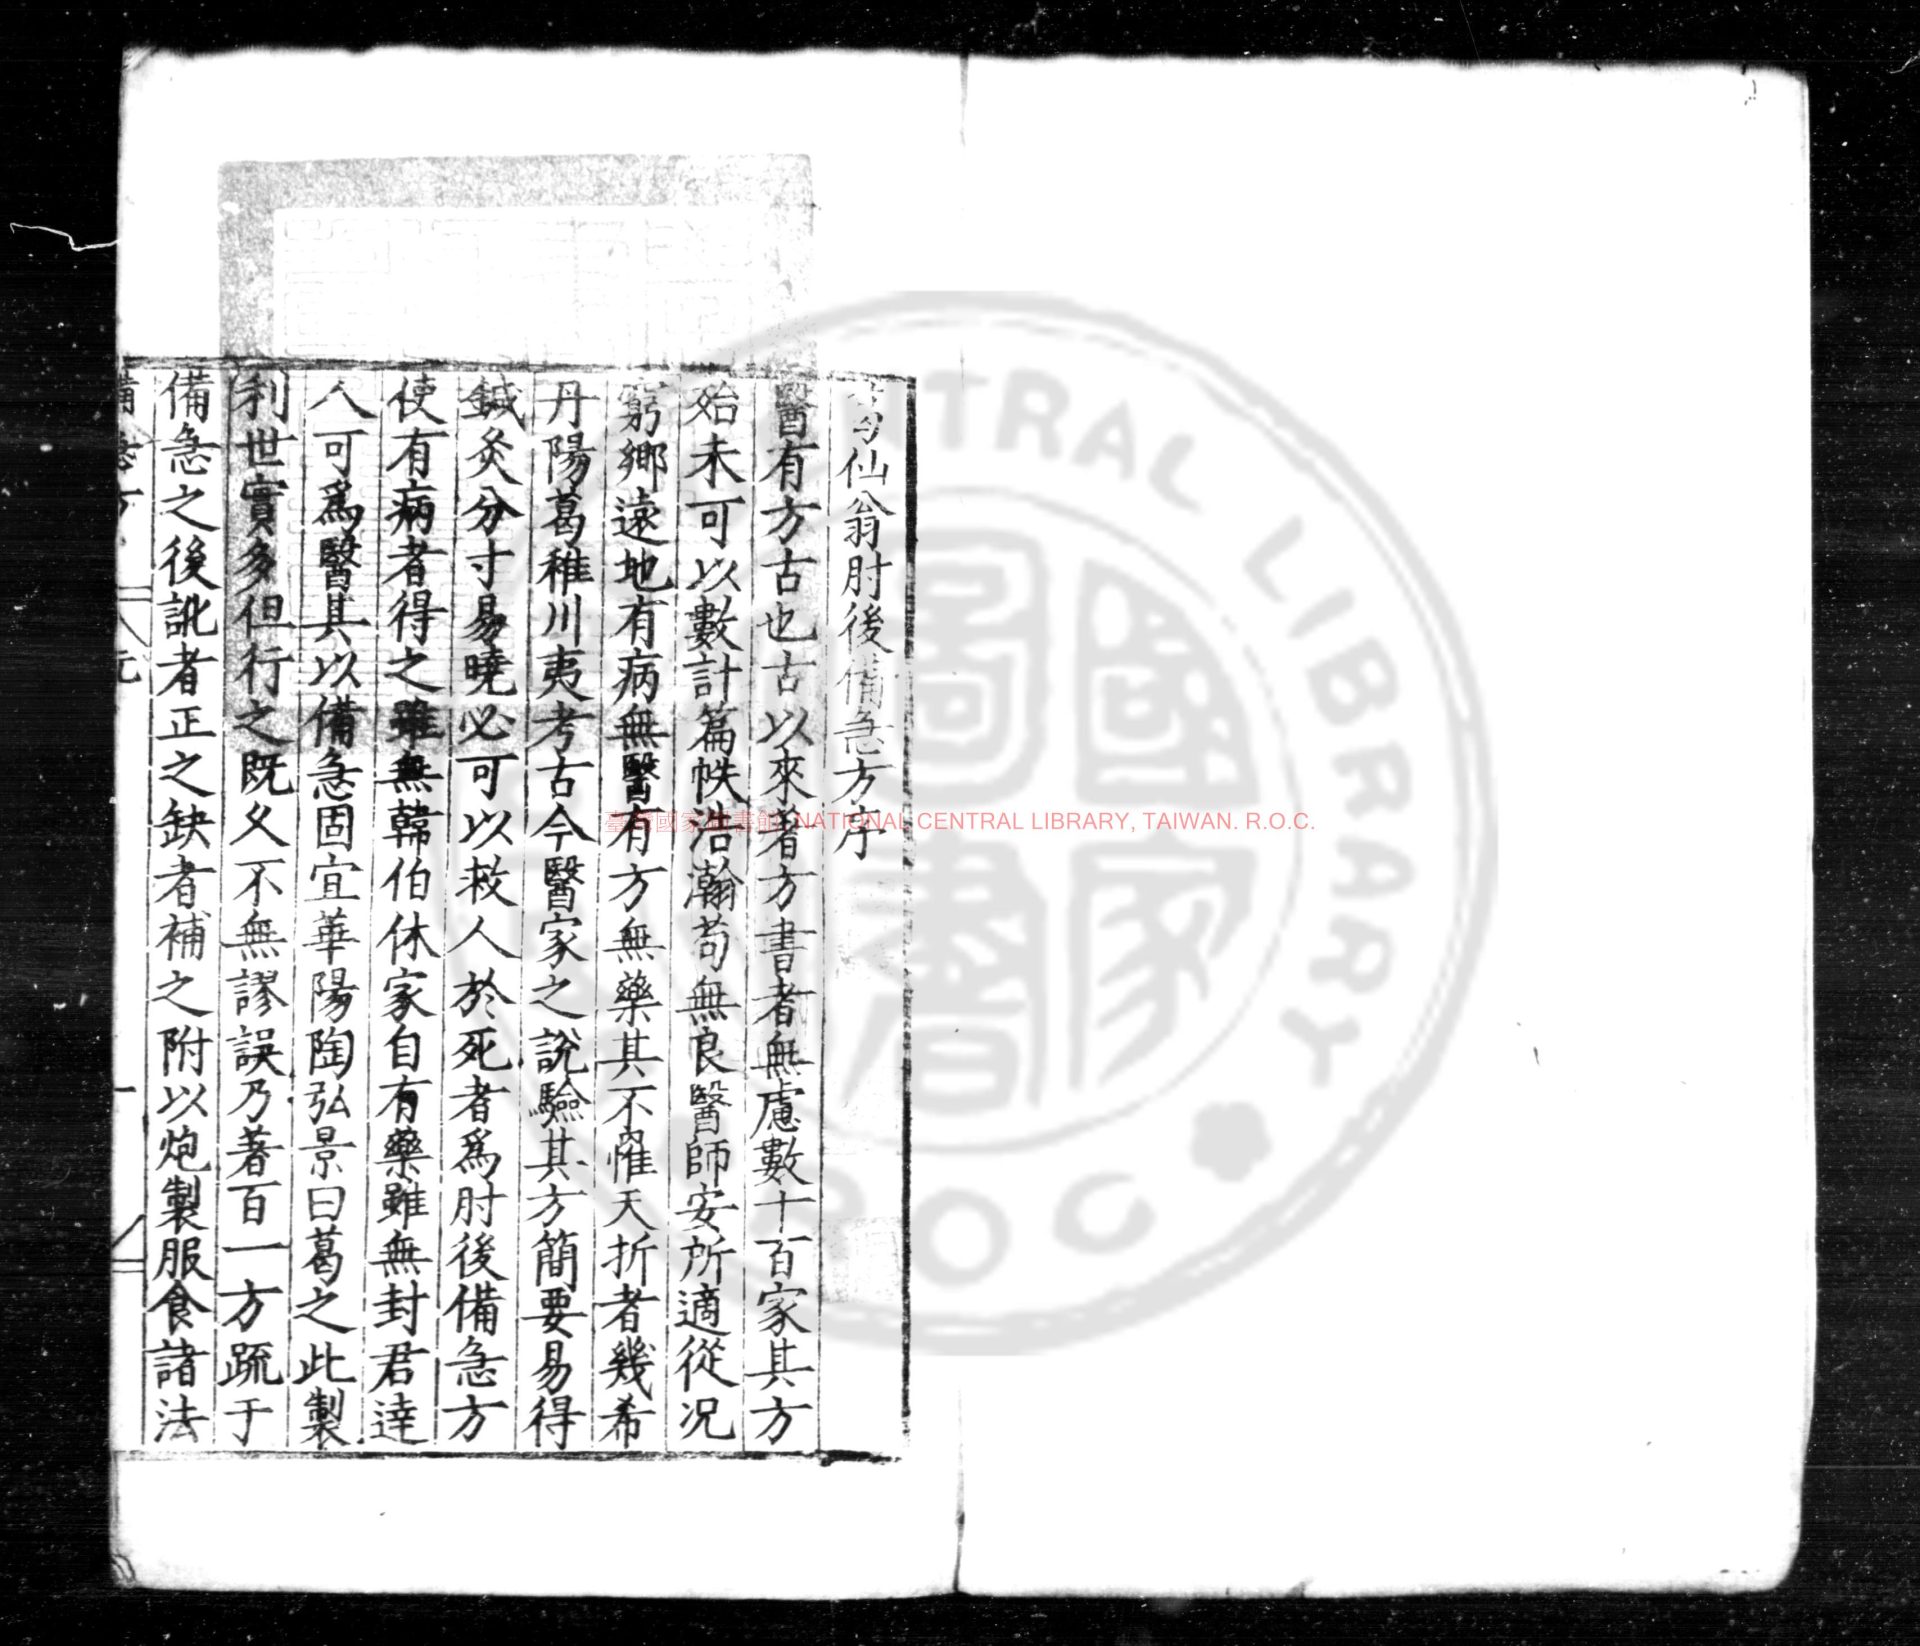 葛仙翁肘後備急方序
醫有方古也古以來著方書者無慮數十百家其方
殆未可以數計篇帙浩瀚苟無良醫師安所適從況
窮鄉遠地有病無醫有方無藥其不罹夭折者幾希
丹陽葛稚川夷考古今醫家之說驗其方簡要易得
鍼灸分寸易曉必可以救人於死者爲肘後備急方
使有病者得之雖無韓伯休家自有藥雖無封君達
人可爲醫其以備急固宜華陽陶弘景曰葛之此製
利世實多但行之既久不無謬誤乃著百一方疏于
備急之後訛者正之缺者補之附以炮製服食諸法
臺灣國家圖書館 NATIONAL CENTRAL LIBRARY, TAIWAN. R.O.C.
CENTRAL LIBRARY
R O C
國家圖書